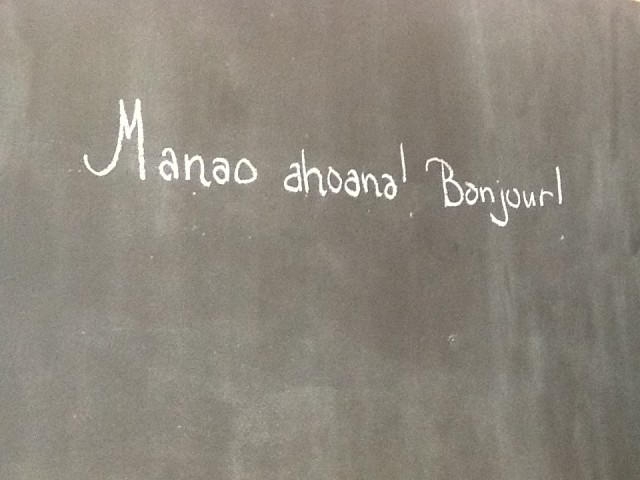 Manao ahoana! Bonjour!